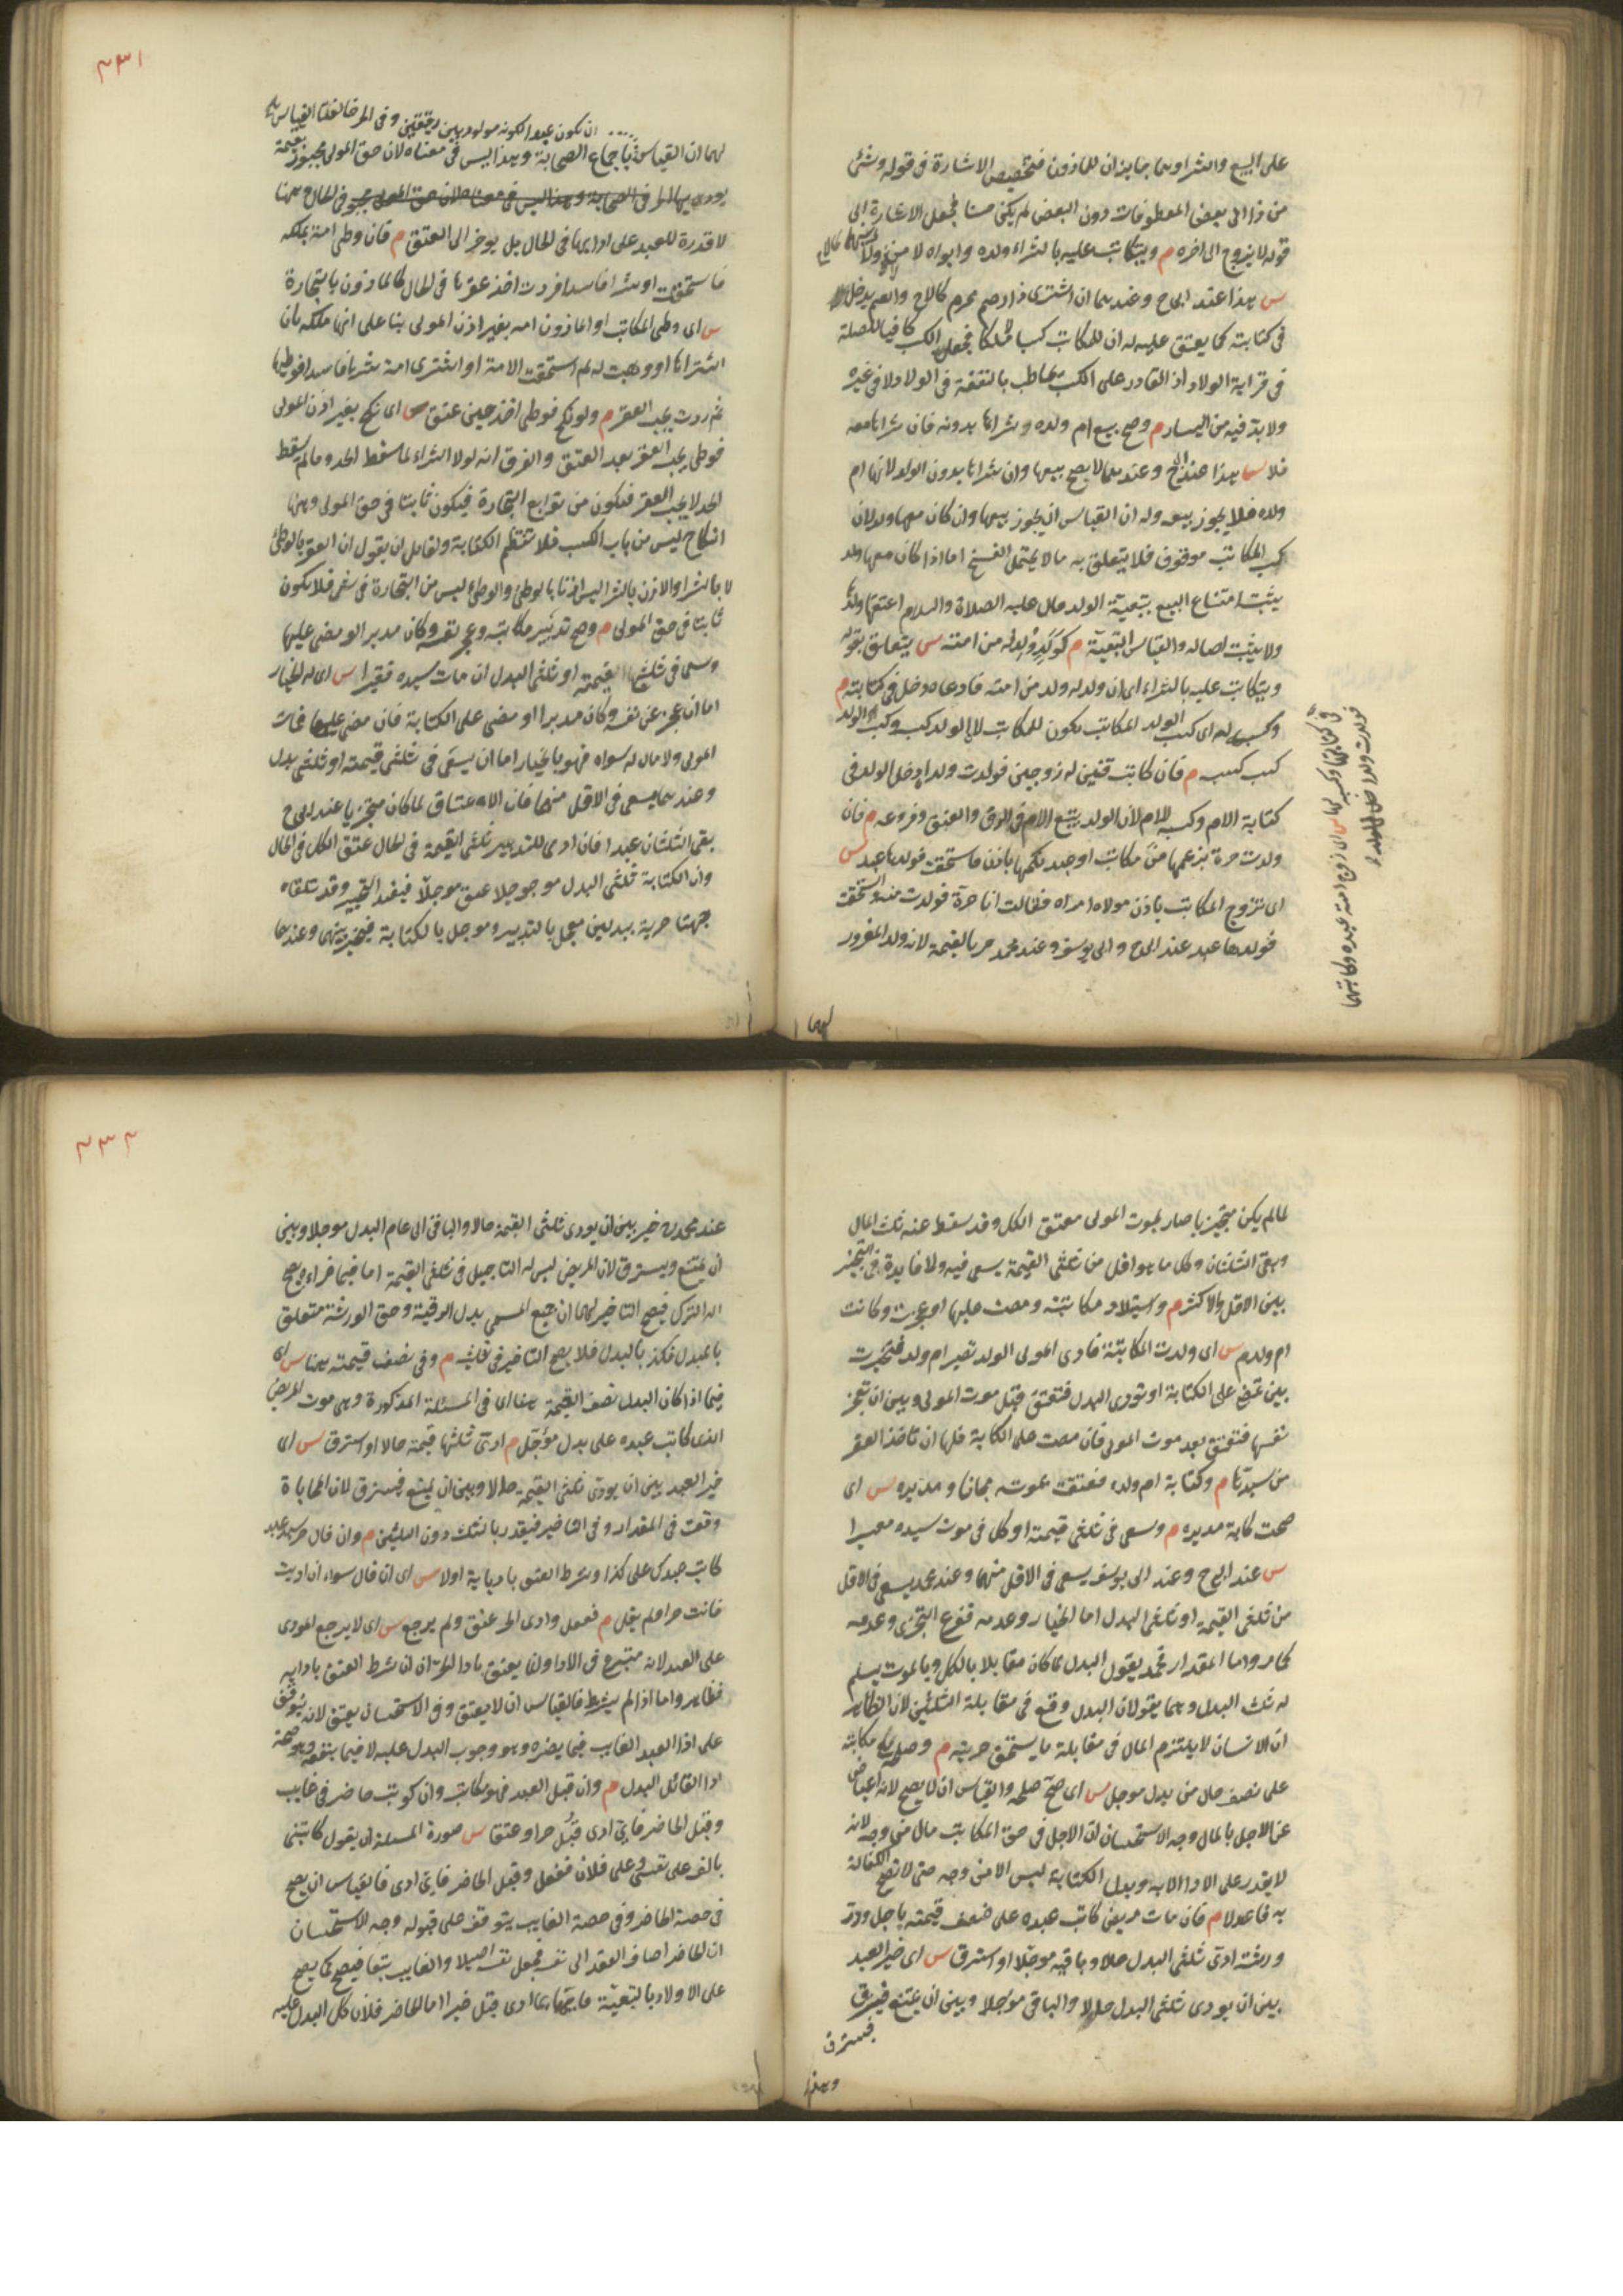 على البيع والشرا وهما جايزان للماذون فتخصيص الاشارة في قوله وشئ
من ذا الى بعض المعطوفات دون البعض لم يكن حسنا فجعل الاشارة الى
قوله لا يزوج الى اخره م ويتكاتب عليه بالشراء ولده وابواه لا من ولا
س هذا عند ابى ح وعندهما ان اشترى ذا رحم محرم كالاخ والعم يدخل
في كتابته كما يعتق عليه له ان للمكاتب كسبا لا ملكا فجعل الكسب كافيا للصلة
في قرابة الولاد اذ القادر على الكسب يخاطب بالنفقة في الولاد لا في غيره
ولا بد فيه من اليسار م وصح بيع ام ولده وشراها بدونه فان شراها معه
فلا س هذا عند ابى ح وعندهما لا يصح بيعها وان شراها بدون الولد لانها ام
ولده فلا يجوز بيعه وله ان القياس ان يجوز بيعها وان كان معها ولد لان
كسب المكاتب موقوف فلا يتعلق به ما لا يحتمل الفسخ اما اذا كان معها ولد
يثبت امتناع البيع بتبعية الولد قال عليه الصلاة والسلام اعتقها ولدها
ولا يثبت اصاله والقياس التبعية م كولد ولد له من امته س يتعلق بقوله
ويتكاتب عليه بالشراء اى ان ولد له ولد من امته فادعاه دخل في كتابته م
وكسبه له اى كسب الولد المكاتب يكون للمكاتب لان الولد كسبه وكسب الولد
كسب كسبه م فان كاتب قنين له زوجين فولدت ولدا دخل الولد في
كتابة الام وكسبه للام لان الولد يتبع الام في الرق والعتق وفروعه م فان
ولدت حرة بزعمها من مكاتب او عبد نكحها باذن فاستحقت فولدها عبد س
اى تزوج المكاتب باذن مولاه امراه فقالت انا حرة فولدت منه واستحقت
فولدها عبد عند ابى ح وابى يوسف وعند محمد حر بالقيمة لانه ولد المغرور
في كتابتها وكسبه لها س اى زوج امته عبده وكاتبهما
فولدت ولدا دخل
لهما
٣٣١
ان يكون عبدا لكونه مولود بين رقيقين وفي الحر خالفنا القياس
لهما ان القياس باجماع الصحابة وهذا ليس في معناه لان حق المولى مجبور بقيمة
يودى بها الحر في الحال وهنا
لا قدرة للعبد على اداها في الحال بل يوخر الى العتق م فان وطى امة بملكه
فاستحقت او بشرا فاسد فردت اخذ عقرها في الحال كالماذون بالتجارة
س اى وطى المكاتب او الماذون امه بغير اذن المولى بنا على انها ملكه بان
اشتراها او وهبت له ثم استحقت الامة او اشترى امة بشرا فاسد فوطيها
ثم ردت يجب العقر م ولو نكح فوطى اخذ حين عتق س اى نكح بغير اذن المولى
فوطى يجب العقر بعد العتق والفرق انه لولا الشراء لما سقط الحد وما لم يسقط
الحد لا يجب العقر فيكون من توابع التجارة فيكون ثابتا في حق المولى وهنا
النكاح ليس من باب الكسب فلا تنتظم الكتابة ولقايل ان يقول ان العقر بالوطئ
لا بالشرا والاذن بالشرا ليس اذنا بالوطئ والوطئ ليس من التجارة في شئ فلا يكون
ثابتا في حق المولى م وصح تدبير مكاتبه وعجز نفسه وكان مدبرا او مضى عليها
وسعى في ثلثى قيمته او ثلثى البدل ان مات سيده فقيرا س اى له الخيار
اما ان عجز عن نفسه وكان مدبرا او مضى على الكتابة فان مضى عليها فمات
المولى ولا مال له سواه فهو بالخيار اما ان يسعى في ثلثى قيمته او ثلثى بدل
وعندهما يسعى في الاقل منهما فان الاعتاق لما كان متجزيا عند ابى ح
بقى الثلثان عبدا فان ادى للتدبير ثلثى القيمة في الحال عتق الكل في الحال
وان الكتابة ثلثى البدل موجلا عتق موجلا فيفيد التخيير وقد تلقاه
جهتا حرية ببدلين معجل بالتدبير وموجل بالكتابة فيخير بينهما وعندهما
لما لم يكن متجزيا صار بموت المولى معتق الكل وقد سقط عنه ثلث المال
وبقى الثلثان وكل ما هو اقل من ثلثى القيمة يسعى فيه ولا فايدة في التخيير
بين الاقل والاكثر م واستيلاد مكاتبته ومضت عليها او عجزت وكانت
ام ولد م س اى ولدت المكاتبة فادعى المولى الولد تصير ام ولد فتخيرت
بين تمضى على الكتابة او تودى البدل فتعتق قبل موت المولى وبين ان تعجز
نفسها فتعتق بعد موت المولى فان مضت على الكتابة فلها ان تاخذ العقر
من سيدها م وكتابة ام ولده فعتقت بموته مجانا ومدبره س اى
صحت كتابة مدبره م وسعى في ثلثى قيمته او كل في موت سيده معسرا
س عند ابى ح وعند ابى يوسف يسعى في الاقل منهما وعند محمد يسعى في الاقل
من ثلثى القيمة او ثلثى البدل اما الخيار وعدمه ففرع التجزى وعدمه
كما مر واما المقدار فمحمد يقول البدل لما كان مقابلا بالكل وبالموت يسلم
له ثلث البدل وهما يقولان البدل وقع في مقابلة الثلثين لان الظاهر
ان الانسان لا يلتزم المال في مقابلة ما يستحق حريته م وصلحه مع مكاتبه
على نصف حال من بدل موجل س اى صح صلحه والقياس ان لا يصح لانه اعتياض
عن الاجل بالمال وجه الاستحسان ان الاجل في حق المكاتب مال من وجه لانه
لا يقدر على الادا الا به وبدل الكتابة ليس الا من وجه حتى لا تصح الكفالة
به فاعتدلا م فان مات مريض كاتب عبده على ضعف قيمته باجل ورد
ورثته ادى ثلثى البدل حالا وباقيه موجلا او استرق س اى خير العبد
بين ان يودى ثلثى البدل حالا والباقي موجلا وبين ان يمتنع فيسترق
فيسترق
وهذا
٣٣٢
عند محمد خير بين ان يودى ثلثى القيمة حالا والباقي الى تمام البدل موجلا وبين
ان يمتنع ويسترق لان المريض ليس له التاجيل في ثلثى القيمة اما فيما وراءه يصح
له الترك فيصح التاخير لهما ان جميع المسمى بدل الرقبة وحق الورثة متعلق
بالمبدل فكذا بالبدل فلا يصح التاخير في ثلثيه م وفي نصف قيمته هنا س اى
فيما اذا كان البدل نصف القيمة هنا اى في المسئلة المذكورة وهى موت المريض
الذى كاتب عبده على بدل مؤجل م ادى ثلثيها قيمته حالا او استرق س اى
خير العبد بين ان يودى ثلثى القيمة حالا وبين ان يمتنع فيسترق لان المحاباة
وقعت في المقدار وفي التاخير فيقدر بالثلث دون الثلثين م وان قال حر لسيد عبد
كاتب عبدك على كذا وشرط العتق بادايه اولا س اى ان قال سواء ان اديت
فانت حر او لم يقل م ففعل وادى الحر عتق ولم يرجع س اى لا يرجع المودى
على العبد لانه متبرع في الادا وانما يعتق بادا الحر ان شرط العتق بادايه
فظاهر واما اذا لم يشرط فالقياس ان لا يعتق وفي الاستحسان يعتق لانه يتوقف
على اذن العبد الغايب فيما يضره وهو وجوب البدل عليه لا فيما ينفعه وهو صحة
ادا القائل البدل م وان قبل العبد فهو مكاتب وان كوتب حاضر في غايب
وقبل الحاضر فاى ادى قُبل جبرا وعتقا س صورة المسئلة ان يقول كاتبنى
بالف على نفسى وعلى فلان ففعل وقبل الحاضر فاى ادى فالقياس ان يصح
في حصة الحاضر وفي حصة الغايب يتوقف على قبوله وجه الاستحسان
ان الحاضر اضاف العقد الى نفسه فجعل نفسه اصيلا والغايب تبعا فيصح كما يصح
على الاولاد بالتبعية فايهما ادى قبل جبرا اما الحاضر فلان كل البدل عليه